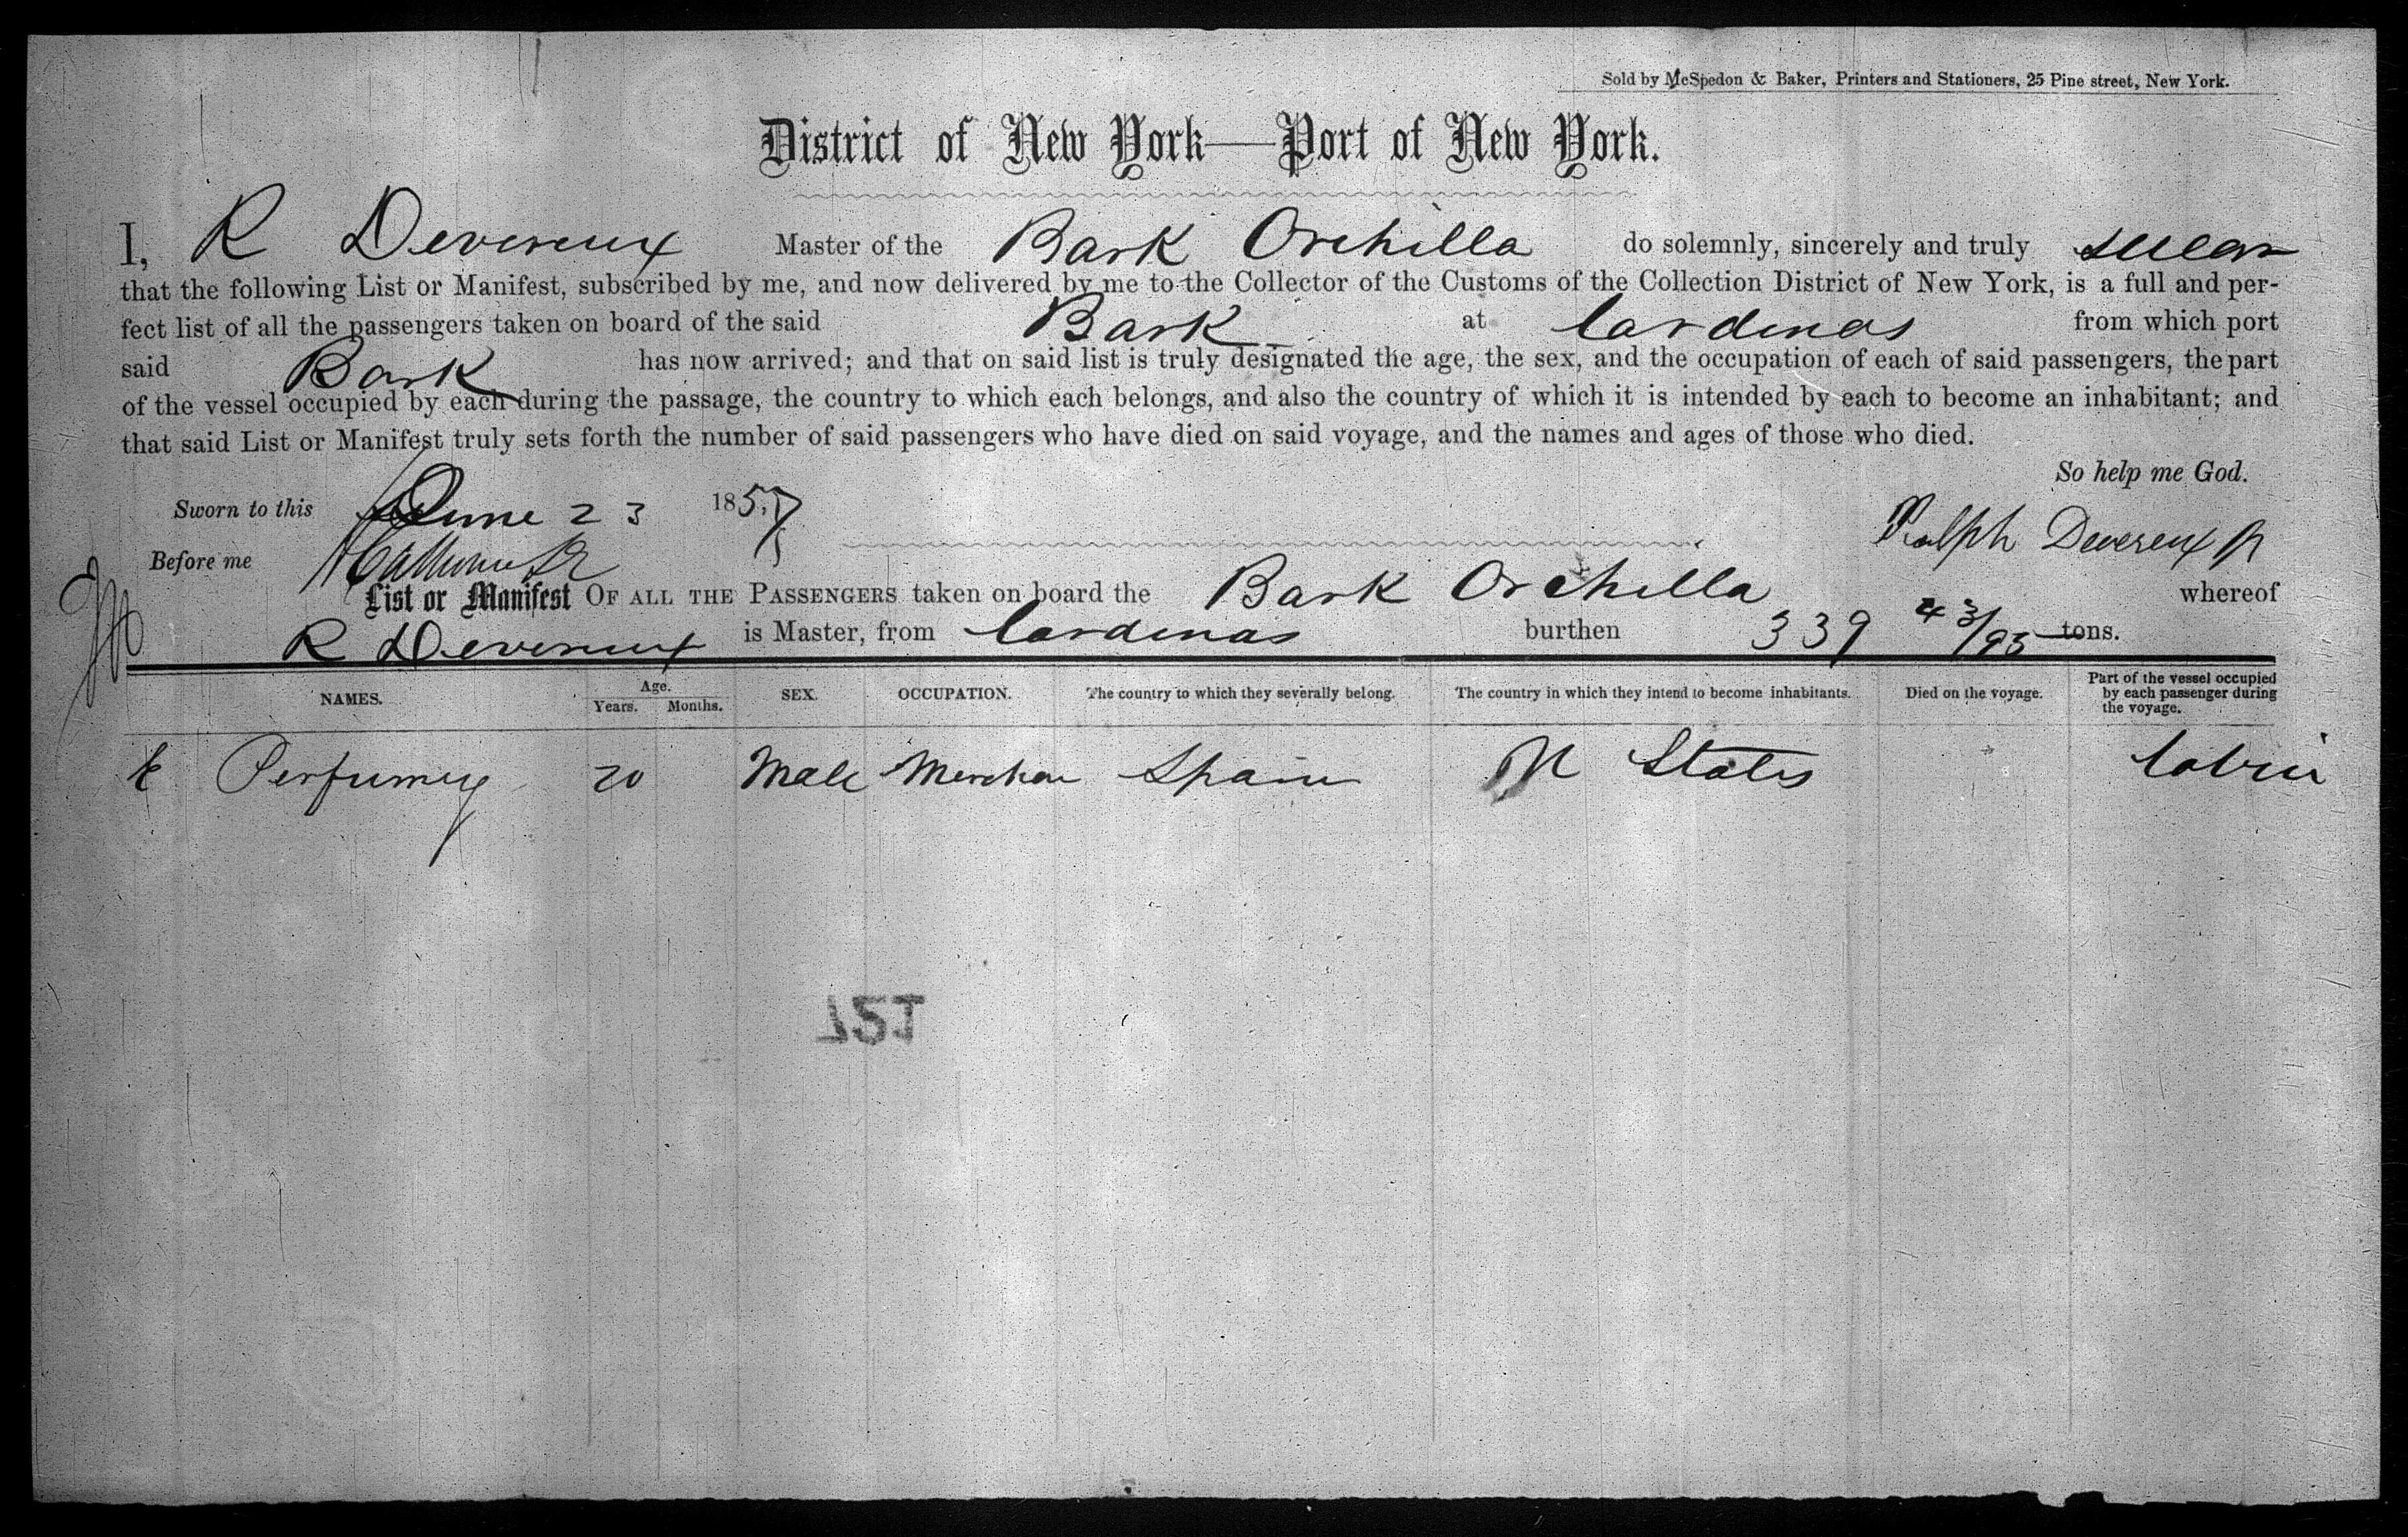 Sold by McSpedon & Baker, Printers and Stationers, 25 Pine street, New York.
District of New York—Port of New York.
I, R Devereux Master of the Bark Orchilla do solemnly, sincerely and truly swear
that the following List or Manifest, subscribed by me, and now delivered by me to the Collector of the Customs of the Collection District of New York, is a full and per-
fect list of all the passengers taken on board of the said Bark at Cardenas from which port
said Bark has now arrived; and that on said list is truly designated the age, the sex, and the occupation of each of said passengers, the part
of the vessel occupied by each during the passage, the country to which each belongs, and also the country of which it is intended by each to become an inhabitant; and
that said List or Manifest truly sets forth the number of said passengers who have died on said voyage, and the names and ages of those who died.
So help me God.
Sworn to this June 23 1857
Ralph Devereux Jr
Before me
List or Manifest OF ALL THE PASSENGERS taken on board the Bark Orchilla whereof
R Devereux is Master, from Cardenas burthen 339 43/95 tons.
NAMES. Age. Years. Months. SEX. OCCUPATION. The country to which they severally belong. The country in which they intend to become inhabitants. Died on the voyage. Part of the vessel occupied by each passenger during the voyage.
E Perfumery 20 Male Merchan Spain U States Cabin
727